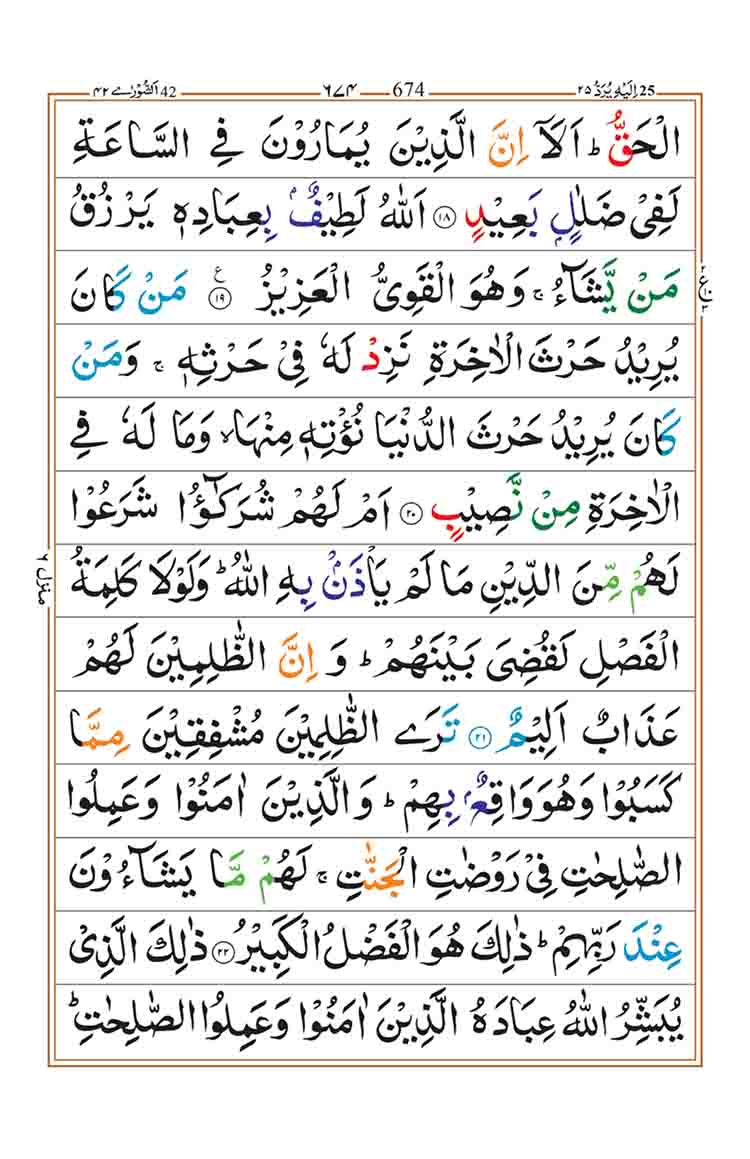 25 اِلَیْهِ یُرَدُّ ۲۵ 674 ۶۷۴ 42 اَلشُّوْرٰے ۴۲
الْحَقُّ ؕ اَلَاۤ اِنَّ الَّذِیْنَ یُمَارُوْنَ فِے السَّاعَةِ
لَفِیْ ضَلٰلٍۭ بَعِیْدٍ ۝۱۸ اَللّٰهُ لَطِیْفٌۢ بِعِبَادِهٖ یَرْزُقُ
مَنْ یَّشَآءُ ۚ وَهُوَ الْقَوِیُّ الْعَزِیْزُ ۝۱۹ ع مَنْ كَانَ
یُرِیْدُ حَرْثَ الْاٰخِرَةِ نَزِدْ لَهٗ فِیْ حَرْثِهٖ ۚ وَمَنْ
كَانَ یُرِیْدُ حَرْثَ الدُّنْیَا نُؤْتِهٖ مِنْهَا ۙ وَمَا لَهٗ فِے
الْاٰخِرَةِ مِنْ نَّصِیْبٍ ۝۲۰ اَمْ لَهُمْ شُرَكٰٓؤُا شَرَعُوْا
لَهُمْ مِّنَ الدِّیْنِ مَا لَمْ یَاْذَنْۢ بِهِ اللّٰهُ ؕ وَلَوْلَا كَلِمَةُ
منزل ۶
الْفَصْلِ لَقُضِیَ بَیْنَهُمْ ؕ وَ اِنَّ الظّٰلِمِیْنَ لَهُمْ
عَذَابٌ اَلِیْمٌ ۝۲۱ تَرَے الظّٰلِمِیْنَ مُشْفِقِیْنَ مِمَّا
كَسَبُوْا وَهُوَ وَاقِعٌۢ بِهِمْ ؕ وَالَّذِیْنَ اٰمَنُوْا وَعَمِلُوا
الصّٰلِحٰتِ فِیْ رَوْضٰتِ الْجَنّٰتِ ۚ لَهُمْ مَّا یَشَآءُوْنَ
عِنْدَ رَبِّهِمْ ؕ ذٰلِكَ هُوَ الْفَضْلُ الْكَبِیْرُ ۝۲۲ ذٰلِكَ الَّذِیْ
یُبَشِّرُ اللّٰهُ عِبَادَهُ الَّذِیْنَ اٰمَنُوْا وَعَمِلُوا الصّٰلِحٰتِ ؕ